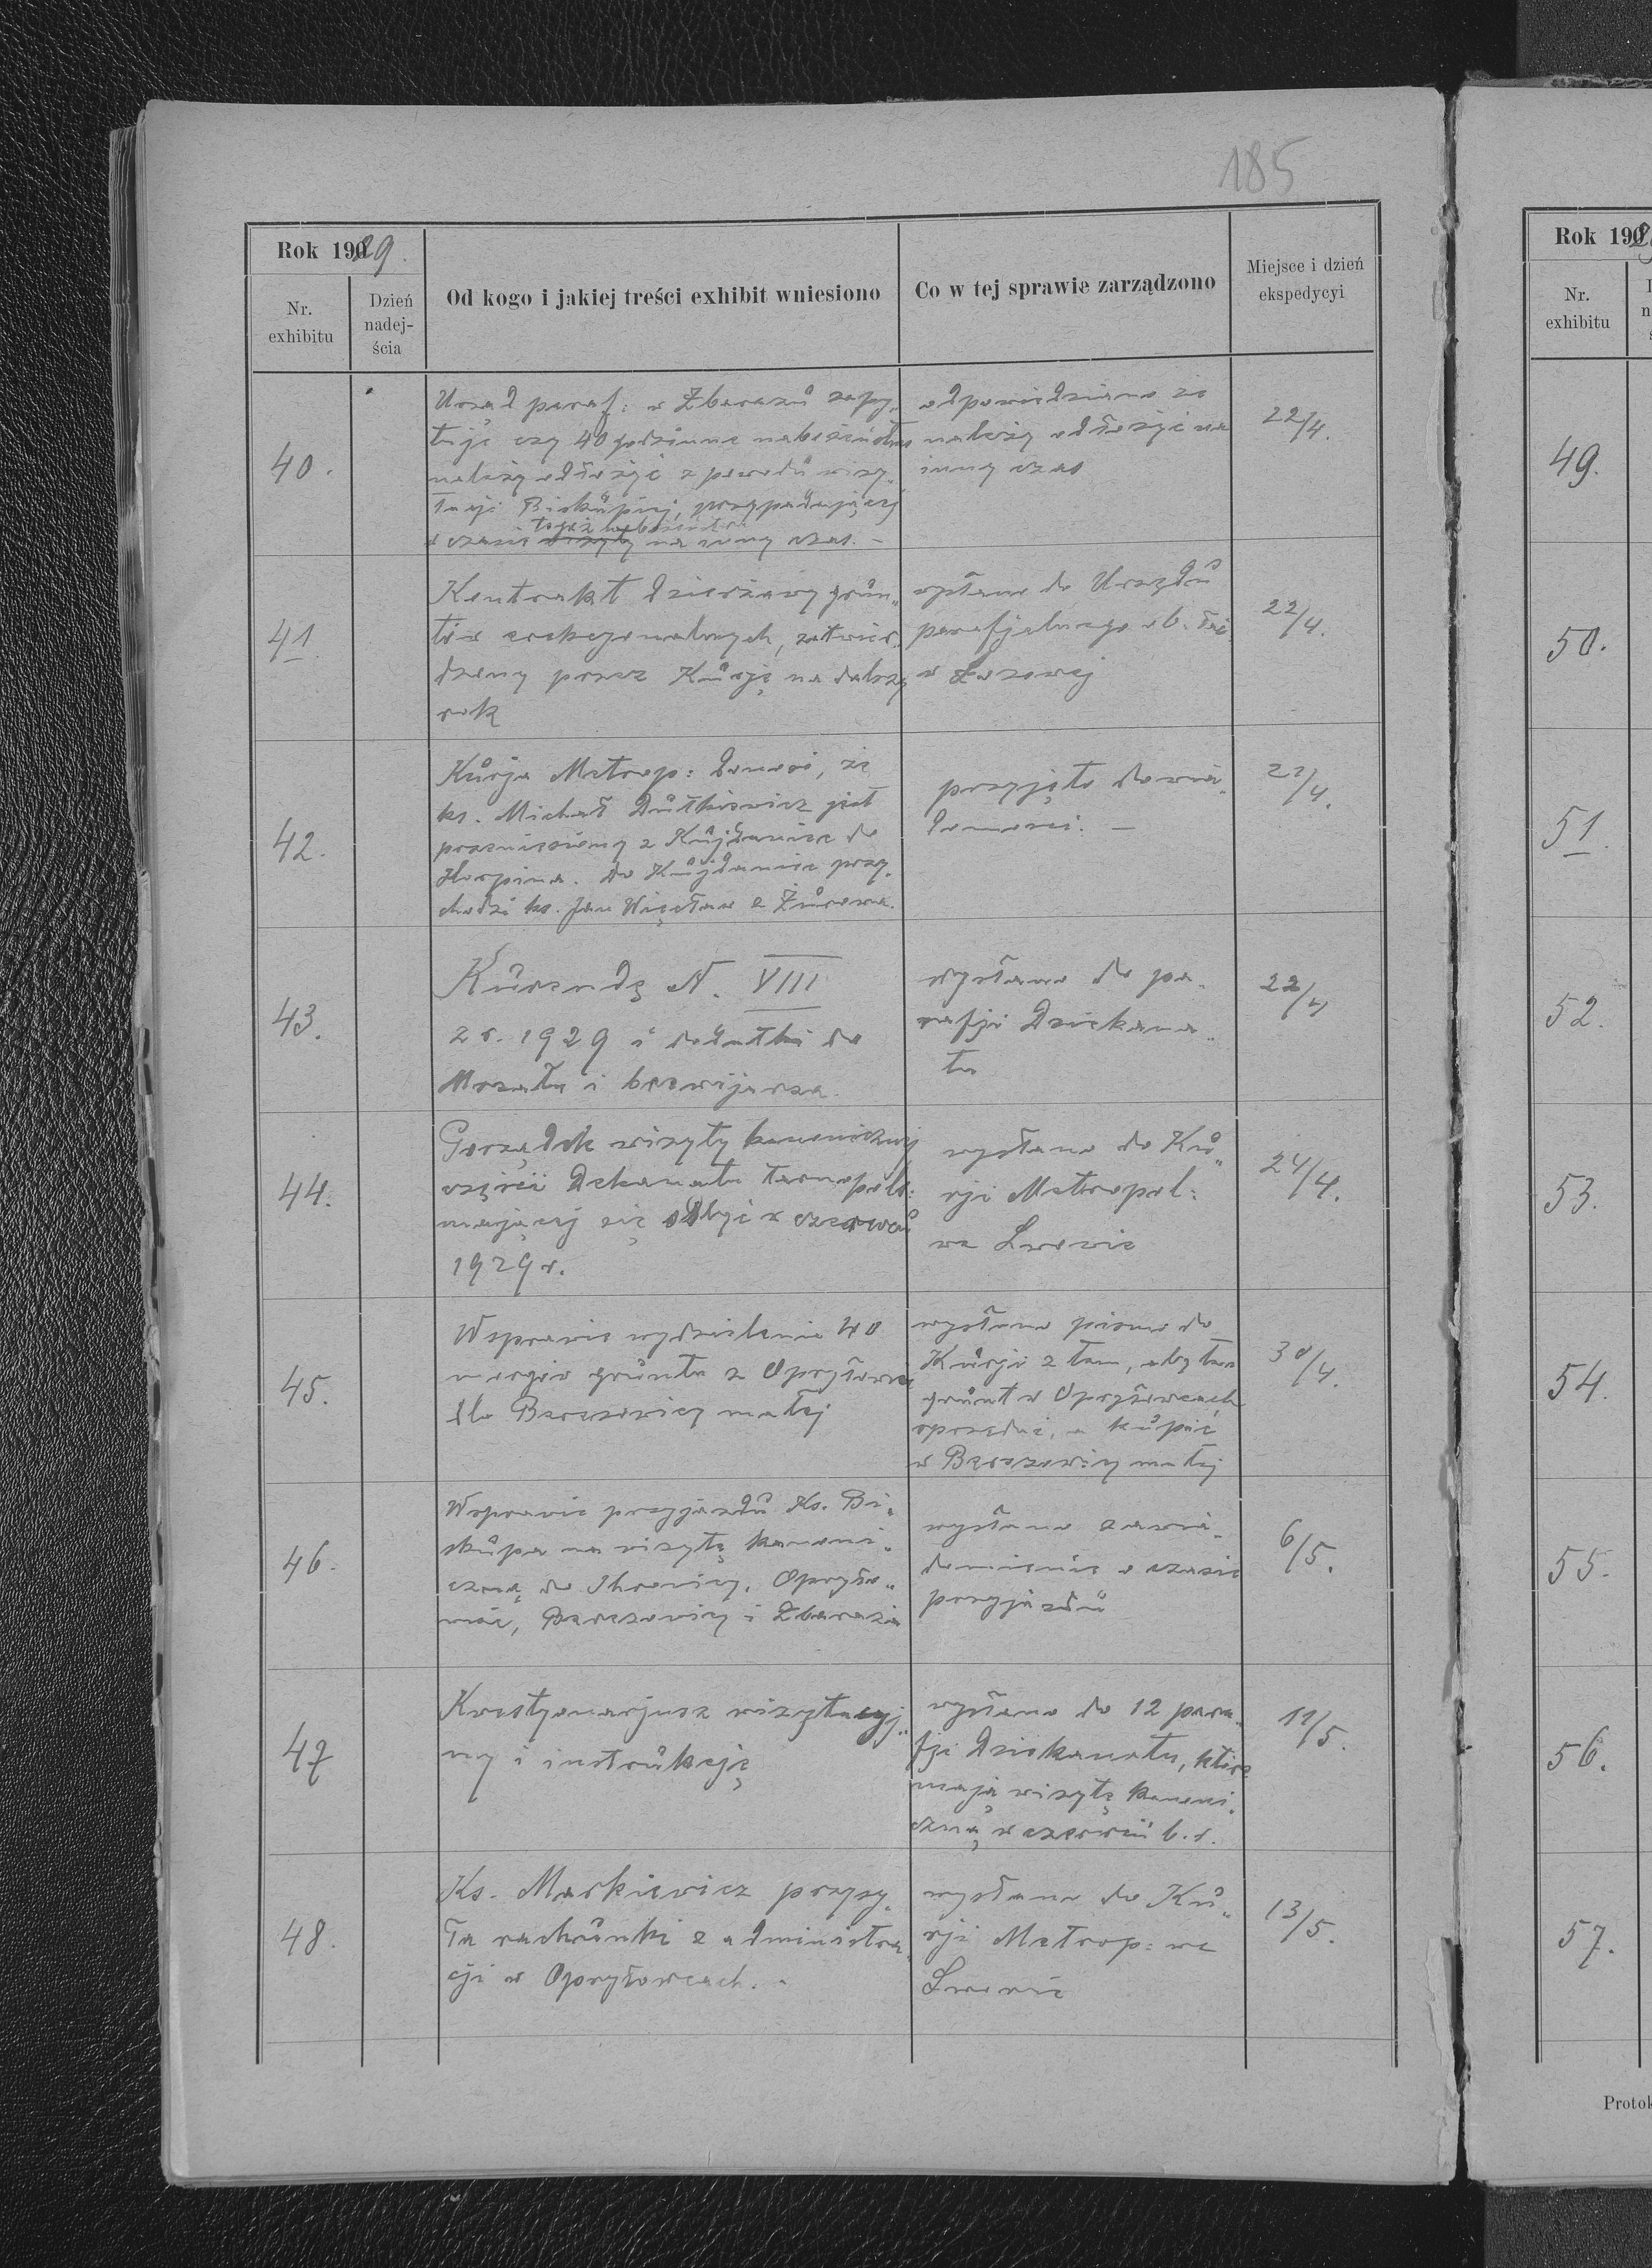 185
Rok 1929.
Nr. exhibitu
Dzień nadejścia
Od kogo i jakiej treści exhibit wniesiono
Co w tej sprawie zarządzono
Miejsce i dzień ekspedycyi
40.
Urząd paraf: w Zbarażu zapy„
tuje czy 40 godzinne nabożeństwo
należy odłożyć z powodu wizy„
tacji Biskupiej, przypadającej
w czasie tegoż nabożeństwa na inny czas. –
odpowiedziano że
należy odłożyć na
inny czas
22/4.
41.
Kontrakt dzierżawy grun„
tów erekcyonalnych, zatwier„
dzony przez Kurję na dalszy
rok
wysłano do Urzędu
parafjalnego ob. łać.
w Łozowej
22/4.
42.
Kurja Metrop: donosi, że
ks. Michał Dutkiewicz jest
przeniesiony z Kujdaniec do
Horpina. Do Kujdaniec przy„
chodzi ks. Jan Więcław z Żurowa.
przyjęto do wia„
domości. –
22/4.
43.
Kurendę N. VIII
z r. 1929 i dodatki do
Mszału i brewijarza.
wysłano do pa„
rafji Dziekana„
tu
22/4
44.
Porządek wizyty kanonicznej
części Dekanatu tarnopols:
mającej się odbyć w czerwcu
1929 r.
wysłano do Ku„
rji Metropol:
we Lwowie
24/4.
45.
W sprawie wydzielenia 40
morgów gruntu z Opryłowiec
dla Berezowicy małej
wysłano pismo do
Kurji z tem, aby ten
grunt w Opryłowcach
sprzedać, a kupić
w Berezowicy małej
30/4.
46.
W sprawie przyjazdu Ks. Bi„
skupa na wizytę kanoni„
czną do Ihrowicy, Opryło„
wiec, Berezowicy i Zbaraża
wysłano zawia„
domienie o czasie
przyjazdu
6/5.
47
Kwestyonarjusz wizytacyj„
ny i instrukcję
wysłano do 12 para„
fji Dziekanatu, które
mają wizytę kanoni„
czną w czerwcu b. r.
11/5.
48.
Ks. Markiewicz przysy„
ła rachunki z administra„
cji w Opryłowcach. –
wysłano do Ku„
rji Metrop: we
Lwowie
13/5.
Rok 1909
Nr. exhibitu
49.
50.
51.
52.
53.
54.
55.
56.
57.
Protok